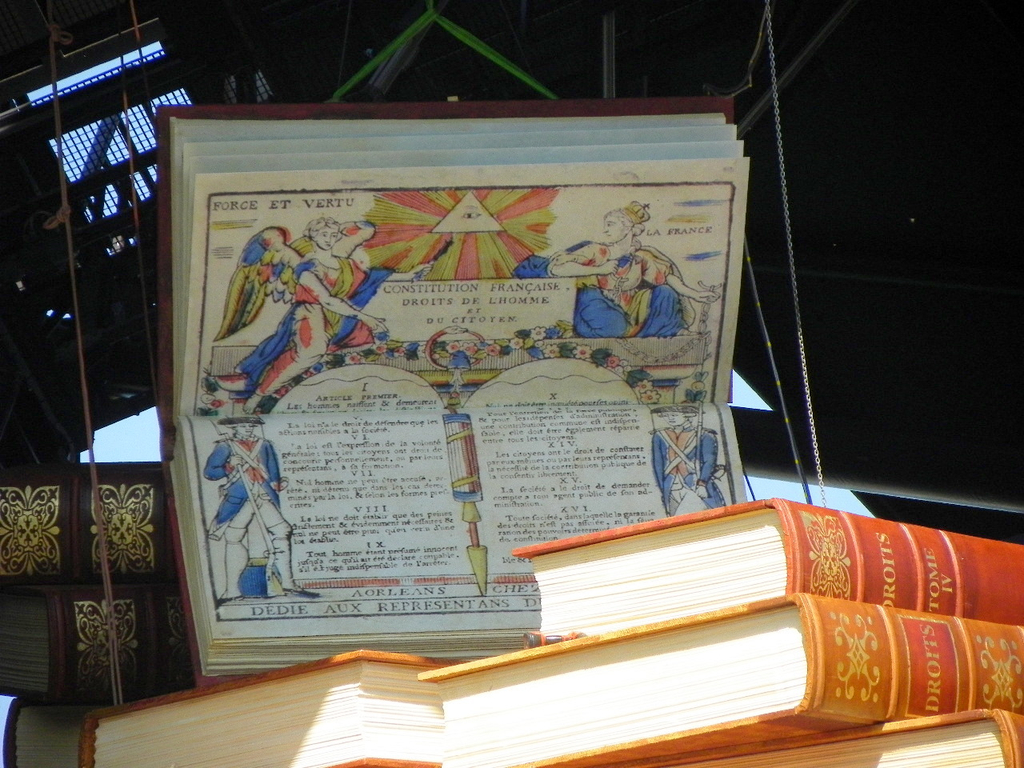 FORCE ET VERTU
LA FRANCE
CONSTITUTION FRANÇAISE.
DROITS DE L'HOMME
ET
DU CITOYEN.
I
ARTICLE PREMIER.
Les hommes naissent & demeurent
La loi n'a le droit de défendre que les
actions nuisibles a la société.
VI.
La loi est l'expression de la volonté
générale; tous les citoyens ont droit de
concourir personnellement, ou par leurs
représentans, à sa formation.
VII.
Nul homme ne peut être accusé,
arrêté, ni détenu que dans les cas déter-
minés par la loi, & selon les formes
VIII.
La loi ne doit établir que des peines
strictement & évidemment nécessaires &
nul ne peut être puni qu'en vertu d'une
loi établie
IX
Tout homme étant présumé innocent
jusqu'a ce qu'il ait été déclaré coupable,
s'il est jugé indispensable de l'arrêter,
X
Nul ne doit être
& pour les dépenses d'administration
contribution commune est indispen-
sable, elle doit être également répartie
entre tous les citoyens.
XIV.
Les citoyens ont le droit de constater
par eux mêmes ou par leurs représentans,
la nécessité de la contribution publique de
la consentir librement.
XV.
La société a le droit de demander
compte a tout agent public de son ad-
ministration.
XVI
Toute société, dans laquelle la garantie
des droits n'est pas assurée, ni la
A ORLEANS CHE
DÉDIÉ AUX REPRESENTANS D
DROITS
TOME
IV
DROITS